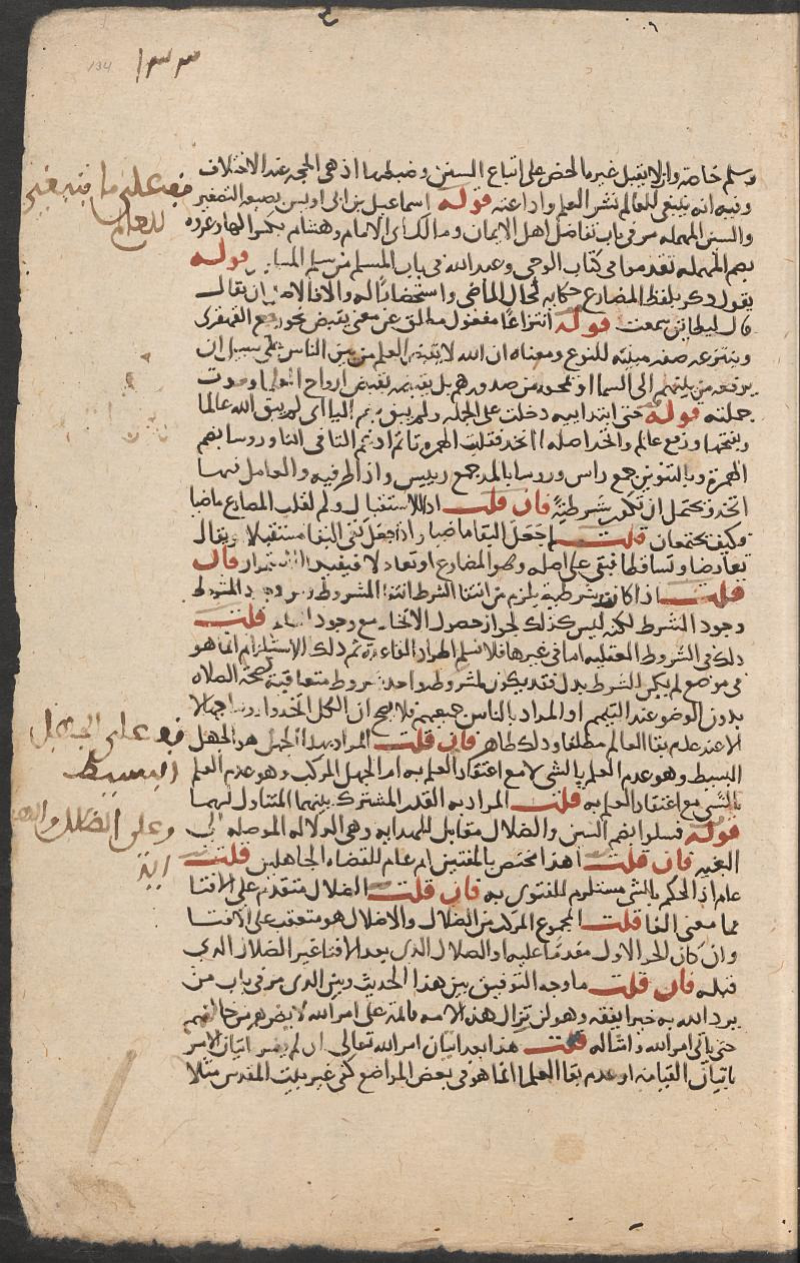 ١٣٣
134
وسلم خاصة وانه لا يقبل غيره الحض على اتباع السنن وضبطها اذ هي الحجة عند الاختلاف
وفيه انه ينبغي للعالم نشر العلم واذاعته قوله اسماعيل بن ابي اويس بصيغة التصغير
والسين المهملة مر في باب تفاضل اهل الايمان ومالك اي الامام وهشام بكسر الهاء وعروة
بضم المهملة تقدموا في كتاب الوحي وعبد الله في باب المسلم من سلم المسلمون قوله
يقول ذكر بلفظ المضارع حكاية لحال الماضي واستحضارا له والا فالاصل ان يقال
قال ليطابق سمعت قوله انتزاعا مفعول مطلق عن معنى يقبض نحو رجع القهقرى
وينتزعه صفة مبينة للنوع ومعناه ان الله لا يقبض العلم من بين الناس على سبيل ان
يرفعه من بينهم الى السما او يمحوه من صدورهم بل يقبضه بقبض ارواح العلما وموت
حملته قوله حتى ابتدايية دخلت على الجملة ولم يبق بضم اليا اي لم يبق الله عالما
وبفتحها ورفع عالم واتخذ اصله ااتخذ فقلبت الهمزة تا ثم ادغم التا في التا وروسا بضم
الهمزة وبالتنوين جمع راس وروسا بالمد جمع رييس واذا ظرفية والعامل فيها
اتخذ ويحتمل ان تكون شرطية فان قلت اذا للاستقبال ولم لقلب المضارع ماضيا
فكيف يجتمعان قلت لم جعل البقا ماضيا واذا جعل نفي البقا مستقبلا او يقال
تعارضا وتساقطا فبقي على اصله وهو المضارع او تعادلا فيفيد الاستمرار فان
قلت اذا كان شرطية يلزم من انتفا الشرط انتفا المشروط ومن وجود المشروط
وجود الشرط لكنه ليس كذلك لجواز حصول الاتخاذ مع وجود العالم قلت
ذلك في الشروط العقلية اما في غيرها فلا نسلم اطراد القاعدة ثم ذلك الاستلزام انما هو
في موضع لم يكن للشرط بدل فقد يكون لمشروط واحد شروط متعاقبة كصحة الصلاة
بدون الوضوء عند التيمم او المراد بالناس جميعهم فلا يصح ان الكل اتخذوا روسا جهالا
الا عند عدم بقا العالم مطلقا وذلك ظاهر فان قلت المراد بهذا الجهل هو الجهل
البسيط وهو عدم العلم بالشي لا مع اعتقاد العلم به ام الجهل المركب وهو عدم العلم
بالشي مع اعتقاد العلم به قلت المراد به القدر المشترك بينهما المتناول لهما
قوله فسئلوا بضم السين والضلال مقابل للهداية وهي الدلالة الموصلة الى
البغية فان قلت اهذا مختص بالمفتين ام عام للقضاة الجاهلين قلت
عام اذ الحكم بالشي مستلزم للفتوى به فان قلت الضلال متقدم على الافتا
فما معنى الفا قلت المجموع المركب من الضلال والاضلال هو متعقب على الافتا
وان كان الجز الاول مقدما عليه او الضلال الذي بعد الافتا غير الضلال الذي
قبله فان قلت ما وجه التوفيق بين هذا الحديث وبين الذي مر في باب من
يرد الله به خيرا يفقهه وهو لن تزال هذه الامة قائمة على امر الله لا يضرهم من خالفهم
حتى ياتي امر الله وامثاله قلت هذا بعد اتيان امر الله تعالى ان لم يفسر اتيان الامر
باتيان القيامة او عدم بقا العلما انما هو في بعض المواضع كفي غير بيت المقدس مثلا
قف على ما ينبغي
للعالم
قف على الجهل
البسيط
وعلى الضلال والهد
اية